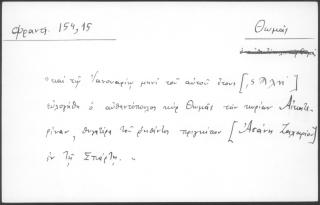 Φραντ. 154,15
Θωμάς
"καὶ τῇ Ἰανουαρίῳ μηνὶ τοῦ αὐτοῦ ἔτους [,ςϠλη']
εὐλογήθη ὁ αὐθεντόπουλος κὺρ Θωμᾶς τὴν κυρίαν Αἰκατε-
ρίναν, θυγατέρα τοῦ ῥηθέντος πρίγκιπος [Ἀσάνη Ζαχαρίου]
ἐν τῇ Σπάρτῃ."